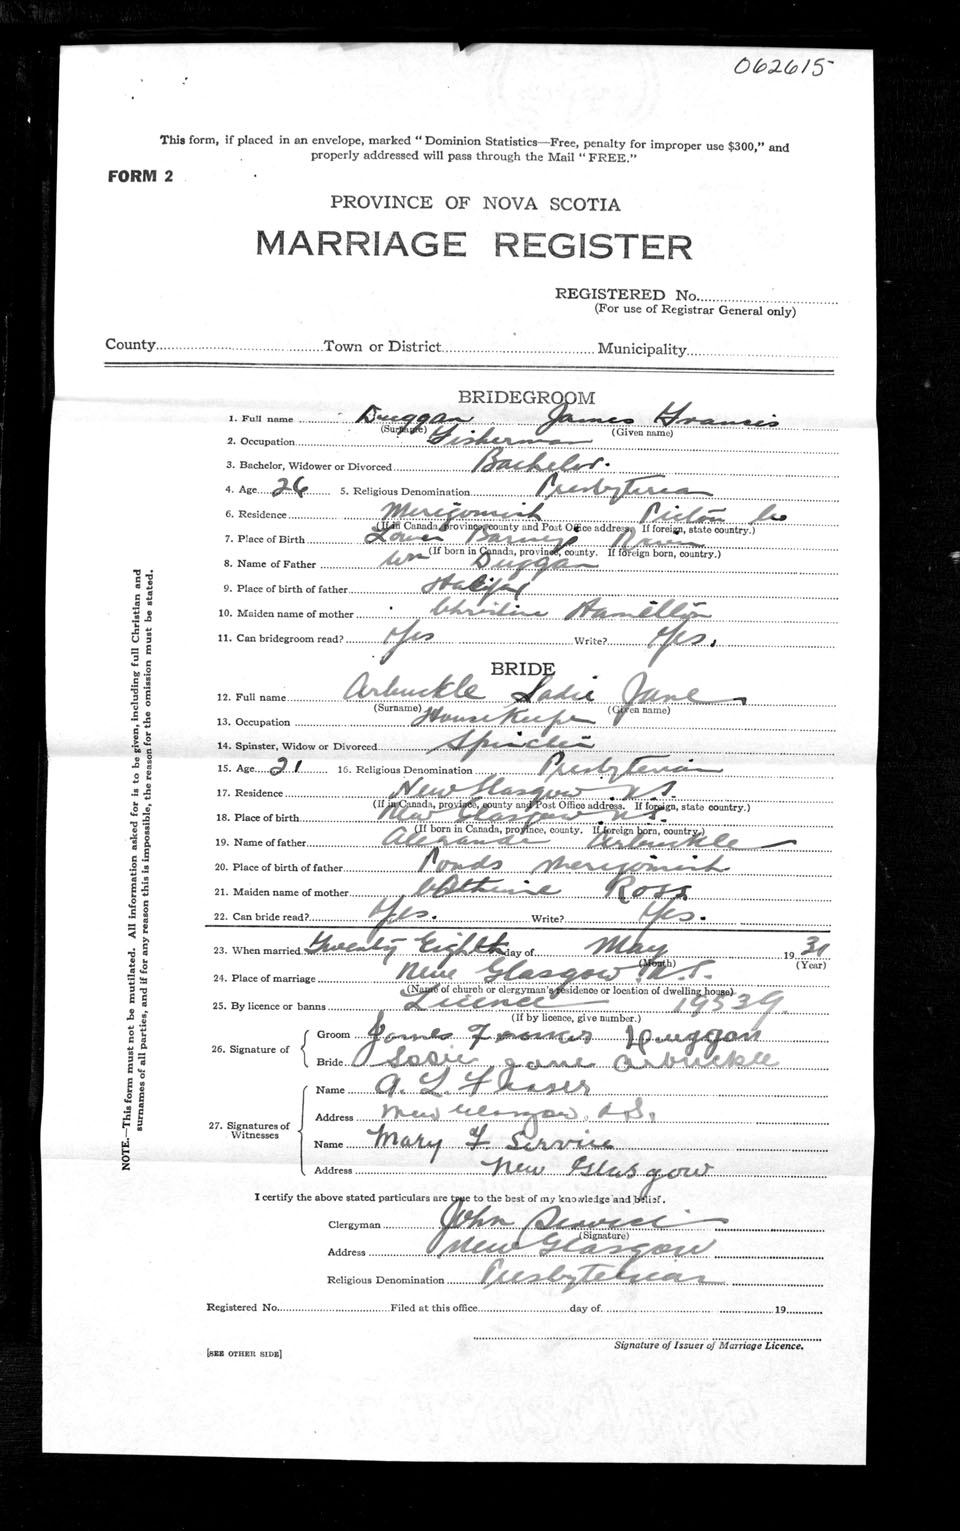 062615
This form, if placed in an envelope, marked "Dominion Statistics—Free, penalty for improper use $300," and
properly addressed will pass through the Mail "FREE."
FORM 2
PROVINCE OF NOVA SCOTIA
MARRIAGE REGISTER
REGISTERED No.
(For use of Registrar General only)
County Town or District Municipality
BRIDEGROOM
1. Full name Duggan James Francis
(Surname) (Given name)
2. Occupation Fisherman
3. Bachelor, Widower or Divorced Bachelor.
4. Age 26 5. Religious Denomination Presbyterian
6. Residence Merigomish Pictou Co
(If in Canada, province, county and Post Office address. If foreign, state country.)
7. Place of Birth Lower Barneys River
(If born in Canada, province, county. If foreign born, country.)
8. Name of Father Wm Duggan
9. Place of birth of father Halifax
10. Maiden name of mother Christine Hamilton
11. Can bridegroom read? Yes Write? Yes.
BRIDE
12. Full name Arbuckle Sadie Jane
(Surname) (Given name)
13. Occupation House Keeper
14. Spinster, Widow or Divorced Spinster
15. Age 21 16. Religious Denomination Presbyterian
17. Residence New Glasgow N.S.
(If in Canada, province, county and Post Office address. If foreign, state country.)
18. Place of birth New Glasgow N.S.
(If born in Canada, province, county. If foreign born, country.)
19. Name of father Alexander Arbuckle
20. Place of birth of father Ponds Merigomish
21. Maiden name of mother Catherine Ross
22. Can bride read? Yes. Write? Yes.
23. When married Twenty Eighth day of May 19
(Month) (Year)
24. Place of marriage New Glasgow N.S.
(Name of church or clergyman's residence or location of dwelling house)
25. By licence or banns Licence 19539
(If by licence, give number.)
26. Signature of Groom James Francis Duggan
Bride Sadie Jane Arbuckle
27. Signatures of Witnesses
Name A. L. Fraser
Address New Glasgow, N.S.
Name Mary F. Service
Address New Glasgow
I certify the above stated particulars are true to the best of my knowledge and belief.
Clergyman John Service
(Signature)
Address New Glasgow
Religious Denomination Presbyterian
Registered No. Filed at this office day of 19
Signature of Issuer of Marriage Licence.
[SEE OTHER SIDE]
NOTE.—This form must not be mutilated. All Information asked for is to be given, including full Christian and
surnames of all parties, and if for any reason this is impossible, the reason for the omission must be stated.